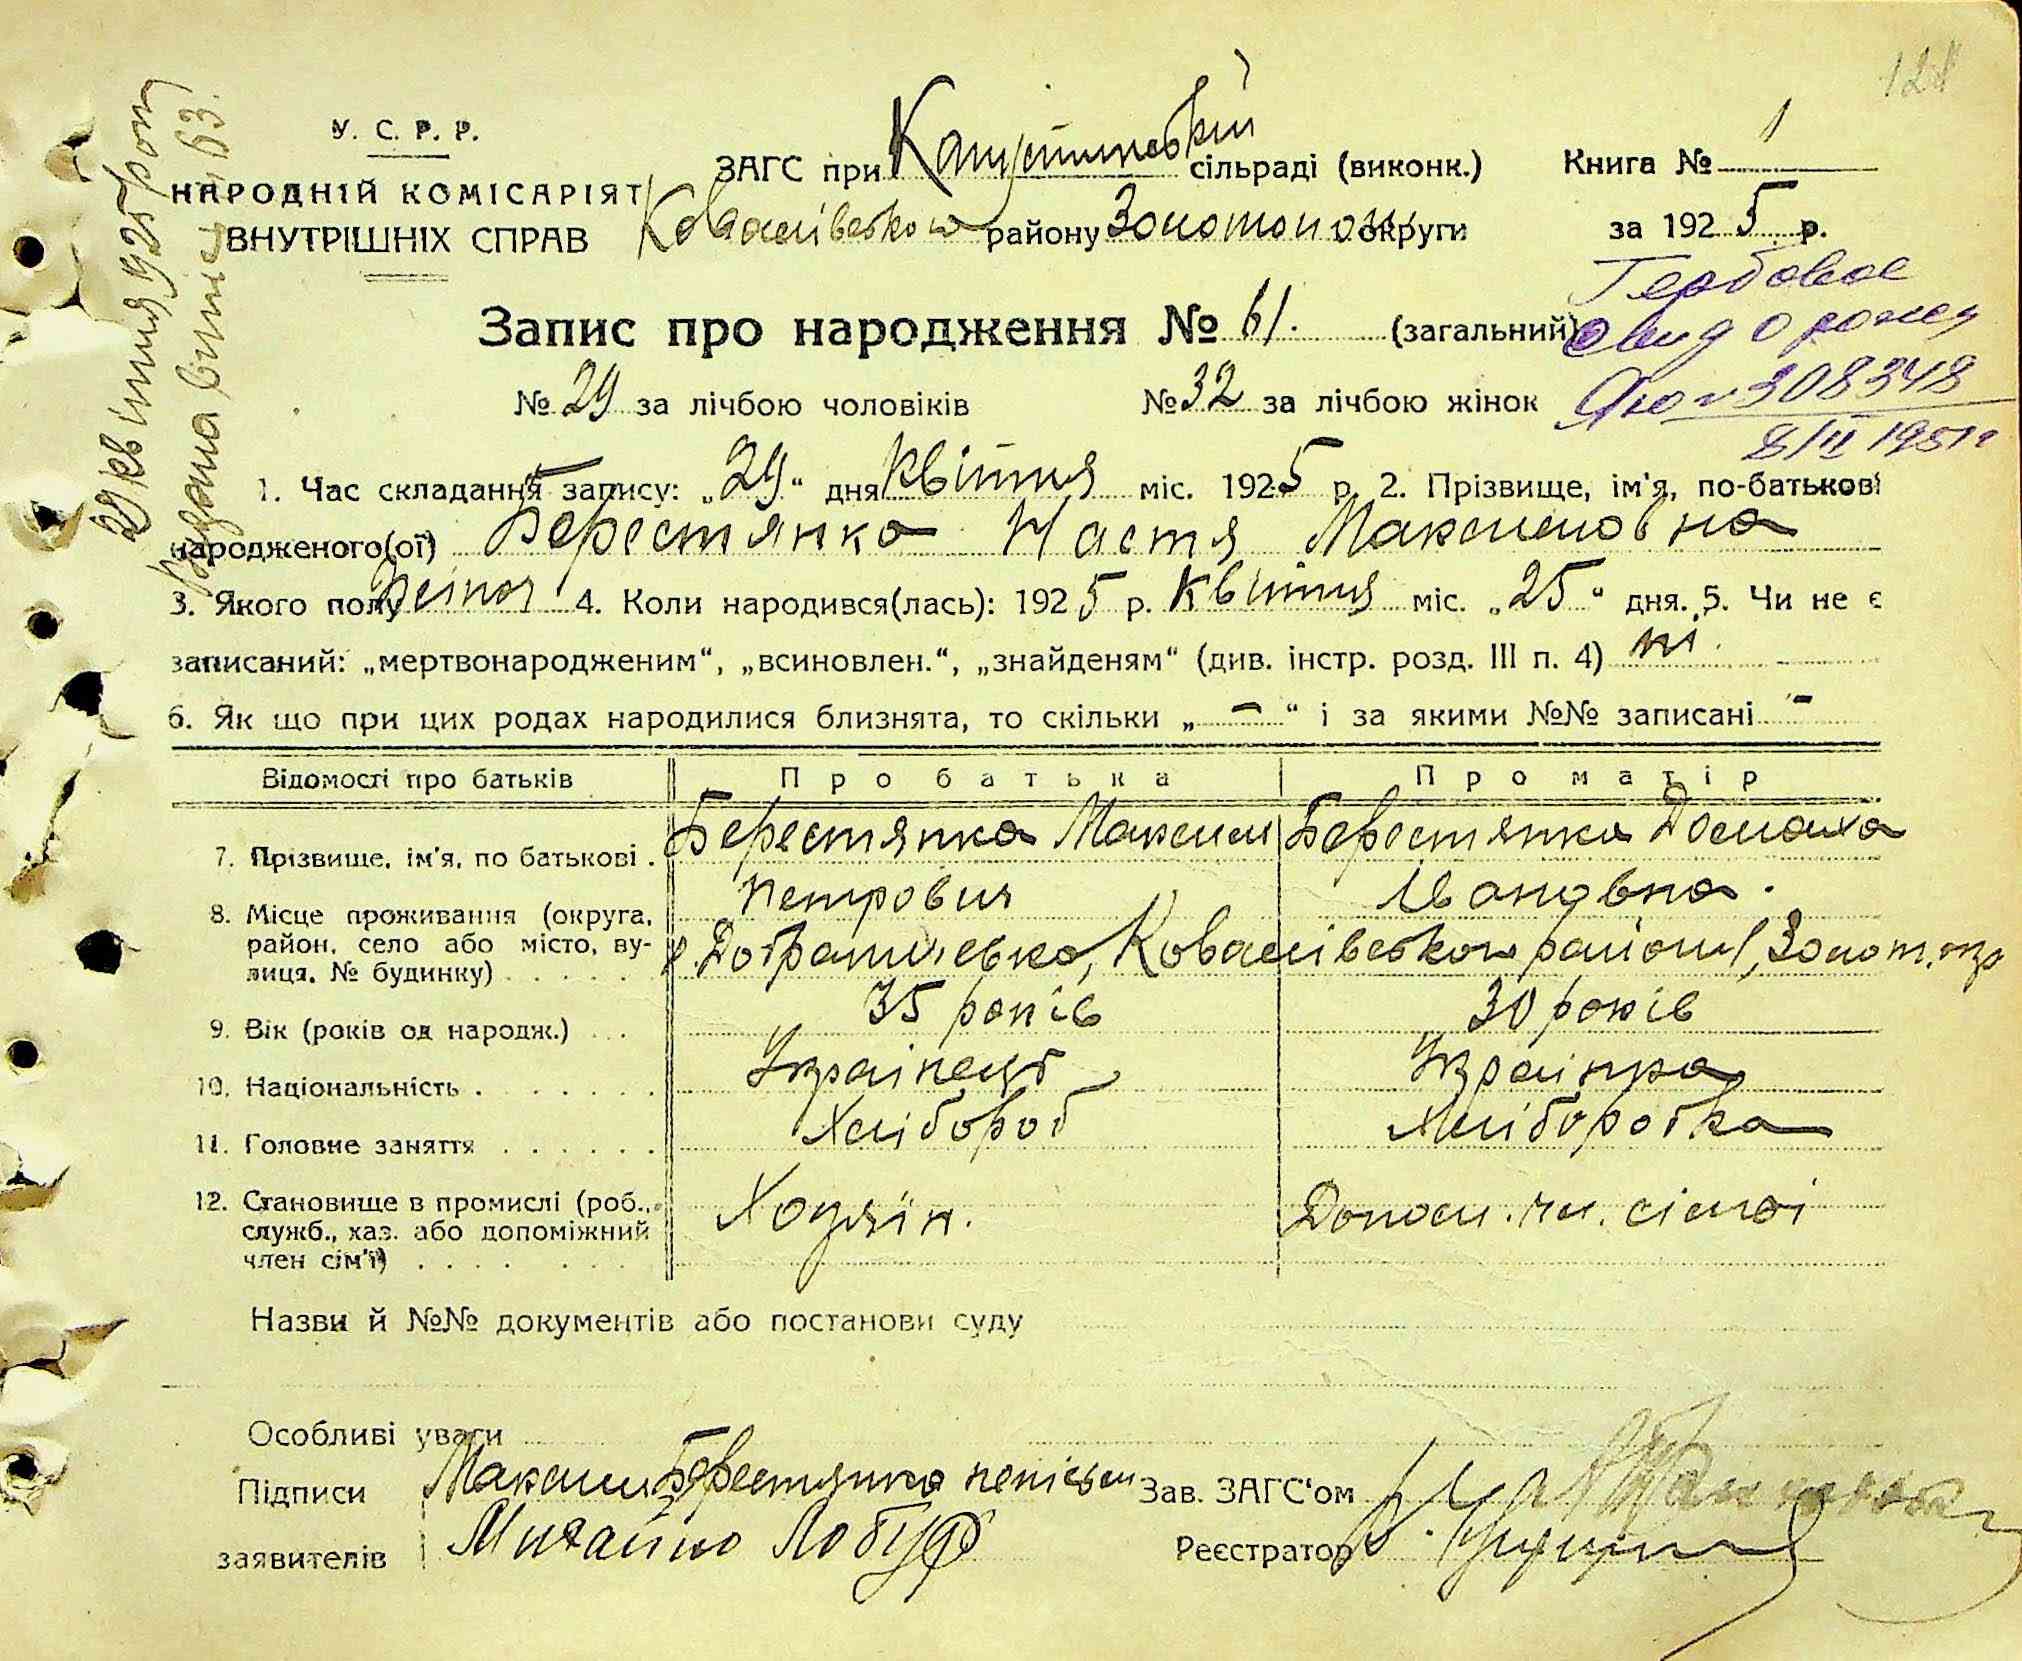 124
У. С. Р. Р.
НАРОДНІЙ КОМІСАРІЯТ
ВНУТРІШНІХ СПРАВ
ЗАГС при Капустинській сільраді (виконк.)
Ковалівського району Золотонош. округи
Книга № 1
за 1925 р.
29 квітня 925 року
Видана виписка 63.
Гербовое
свид о рожд
№ 308348
8/II 1951г
Запис про народження № 61. (загальний)
№ 29 за лічбою чоловіків № 32 за лічбою жінок
1. Час складання запису: „29“ дня квітня міс. 1925 р. 2. Прізвище, ім'я, по-батькові
народженого(ої) Берестянка Настя Максимовна
3. Якого полу Жіноч 4. Коли народився(лась): 1925 р. квітня міс. „25“ дня. 5. Чи не є
записаний: „мертвонародженим“, „всиновлен.“, „знайденям“ (див. інстр. розд. III п. 4) ні.
6. Як що при цих родах народилися близнята, то скільки „ – “ і за якими №№ записані –
Відомості про батьків Про батька Про матір
7. Прізвище, ім'я, по батькові . Берестянка Максим Петрович Берестянка Домаха Івановна.
8. Місце проживання (округа,
район, село або місто, ву-
лиця, № будинку) . . . . . Ковалівського району, Золот. окр
9. Вік (років од народж.) . . . 35 років 30 років
10. Національність . . . . . . . Українець Українка
11. Головне заняття . . . . . . Хлібороб Хліборобка
12. Становище в промислі (роб.,
служб., хаз. або допоміжний
член сім'ї) . . . . Хозяїн. Допом. чл. сімьі
Назви й №№ документів або постанови суду
Особливі уваги
Підписи Максим Берестянка неписьм
заявителів Михайло
Зав. ЗАГС'ом
Реєстратор